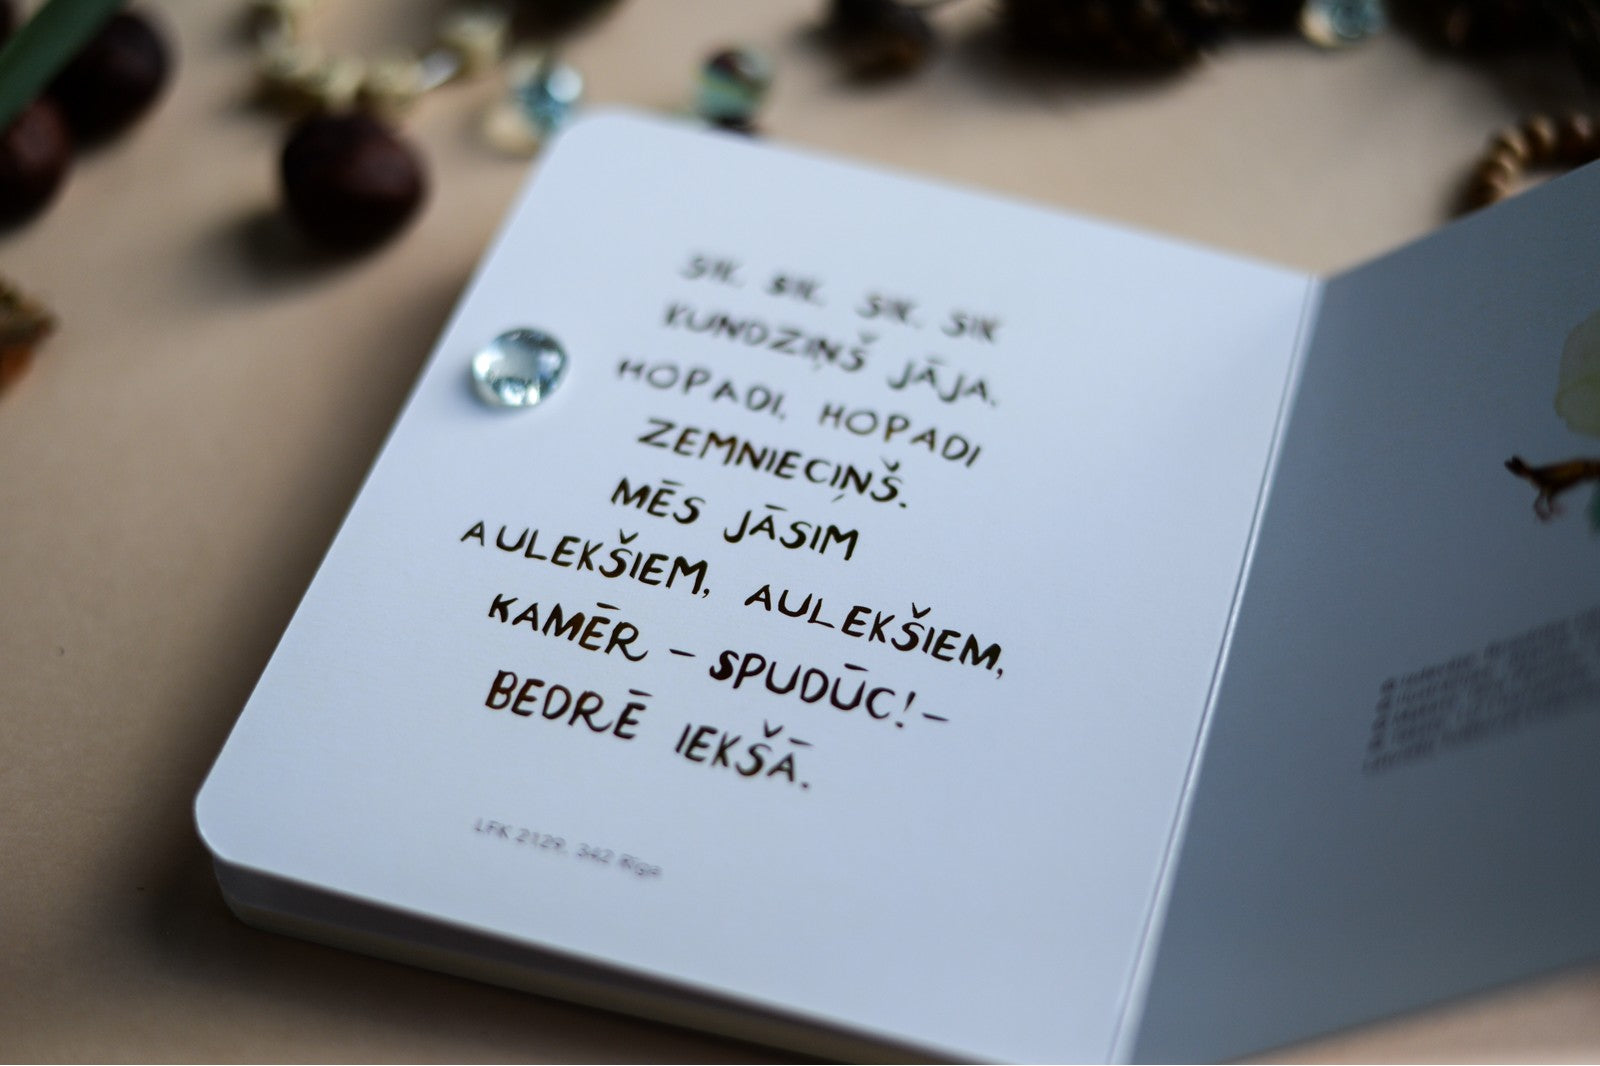 SIK, SIK, SIK, SIK
KUNDZIŅŠ JĀJA,
HOPADI, HOPADI
ZEMNIECIŅŠ.
MĒS JĀSIM
AULEKŠIEM, AULEKŠIEM,
KAMĒR – SPUDŪC! –
BEDRĒ IEKŠĀ.
LFK 2129, 342 Rīga